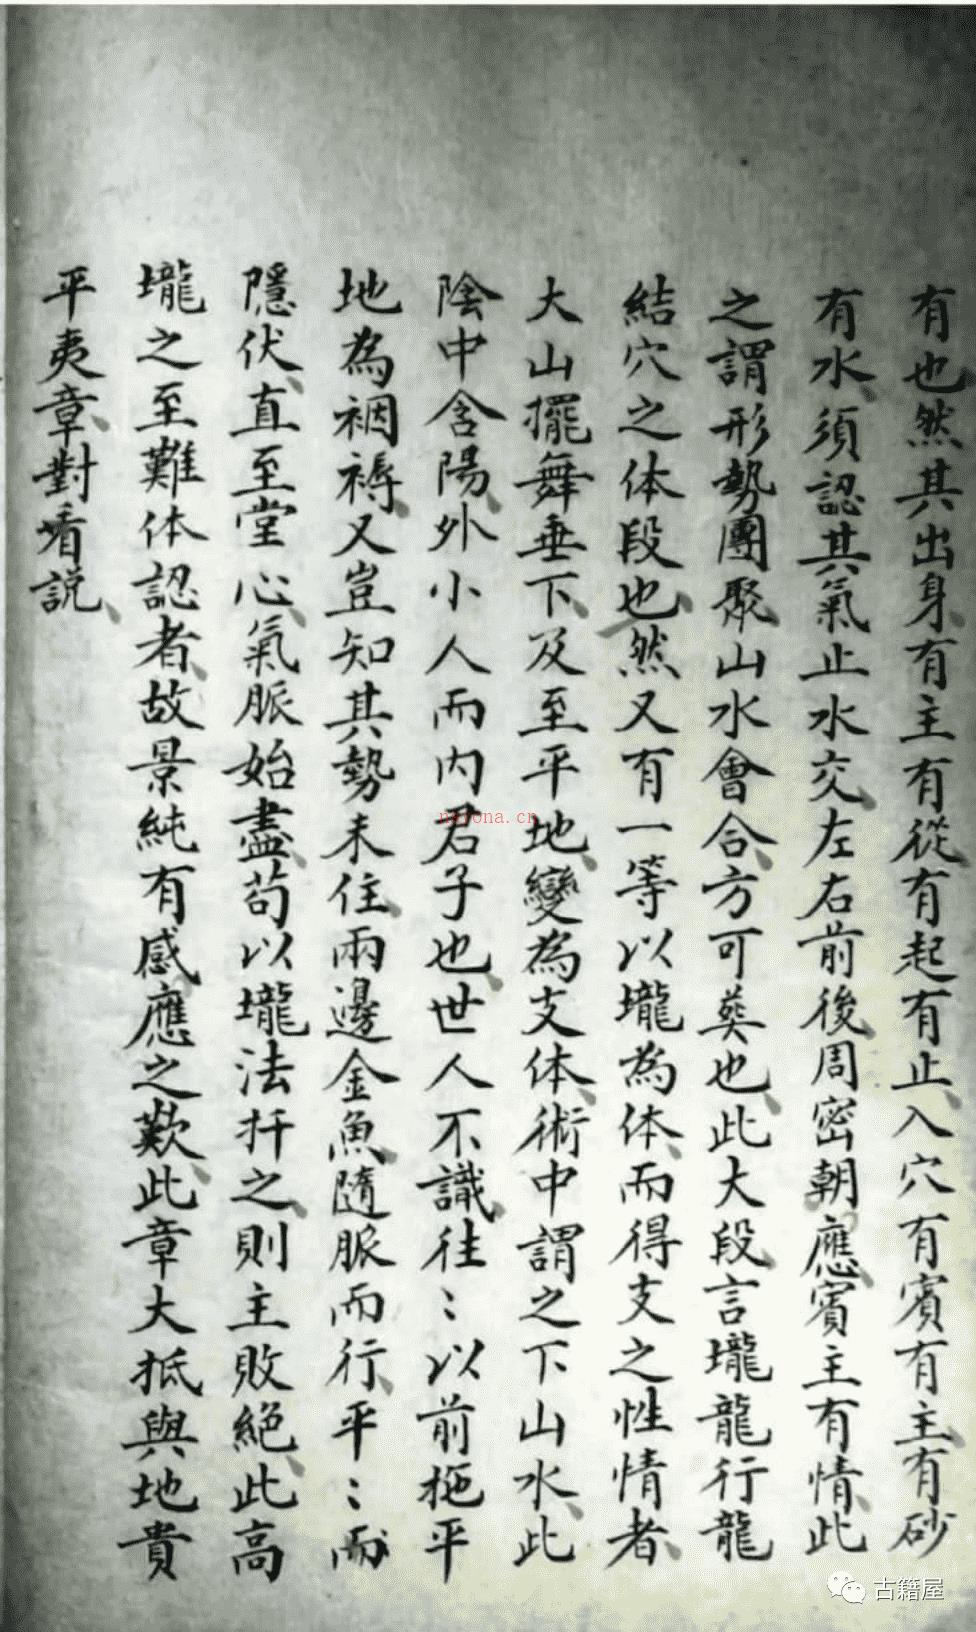 有也然其出身、有主有從有起有止、入穴有賓有主、有砂
有水、須認其氣止水交、左右前後周密朝應、賓主有情、此
之謂形勢團聚山水會合、方可葬也、此大段言壠龍行龍
結穴之体段也、然又有一等以壠為体、而得支之性情者、
大山擺舞垂下、及至平地、變為支体、術中謂之下山水、此
陰中含陽、外小人而内君子也、世人不識、往〻以前拖平
地為裀褥、又豈知其勢未住、兩邊金魚隨脈而行、平〻而
隱伏、直至堂心、氣脈始盡、苟以壠法扦之、則主敗絕、此高
壠之至難体認者、故景純有感應之歎、此章大抵與地貴
平夷章、對看説、
narona.cn
古籍屋